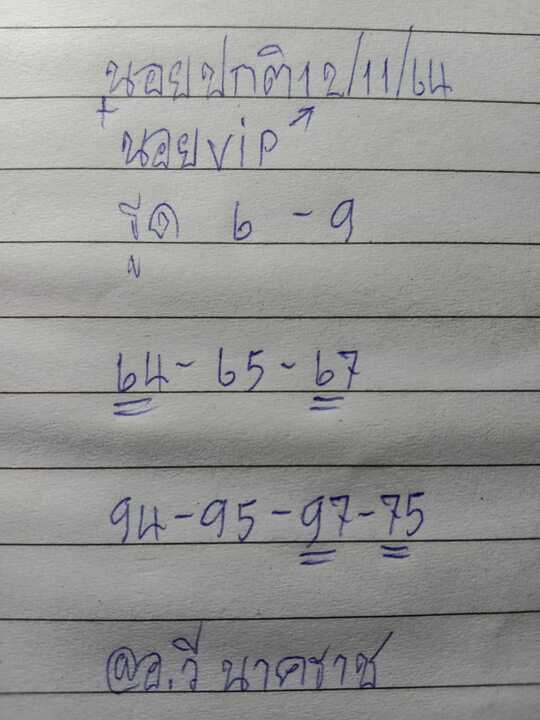 นอยปกติ12/11/64
+ นอย vip ↗
รูด 6 - 9
64 - 65 - 67
94 - 95 - 97 - 75
@อ.วี นาคราช